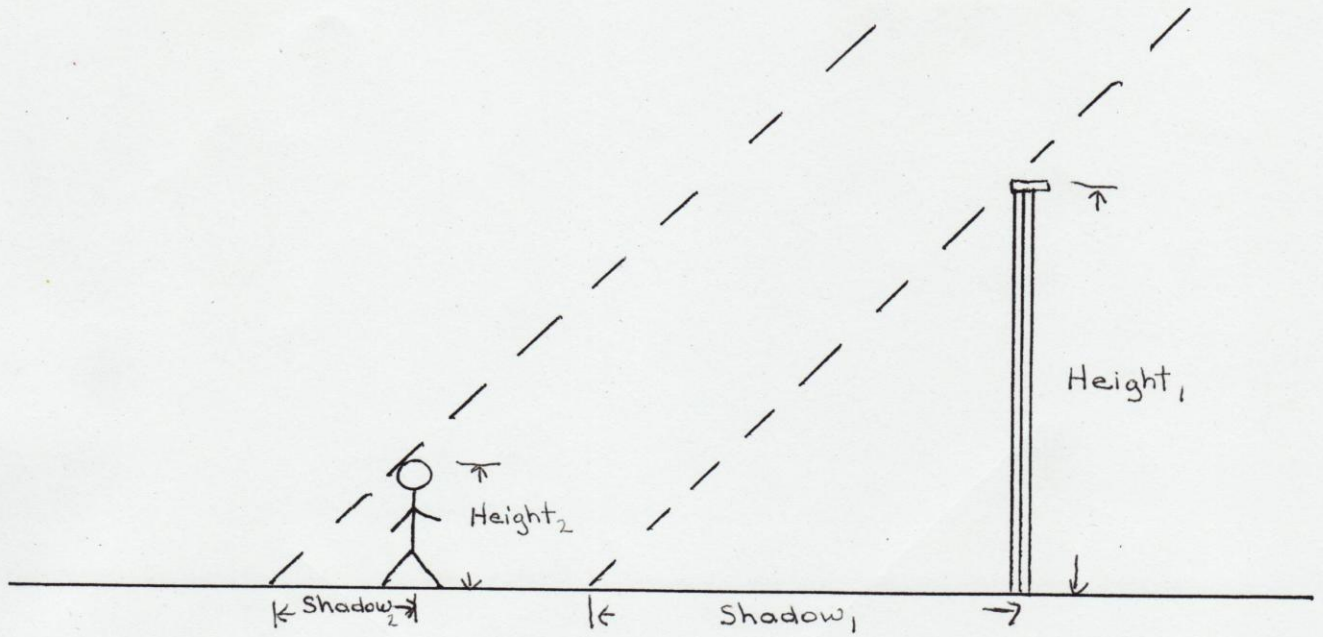 Height₁
Height₂
Shadow₂
Shadow₁